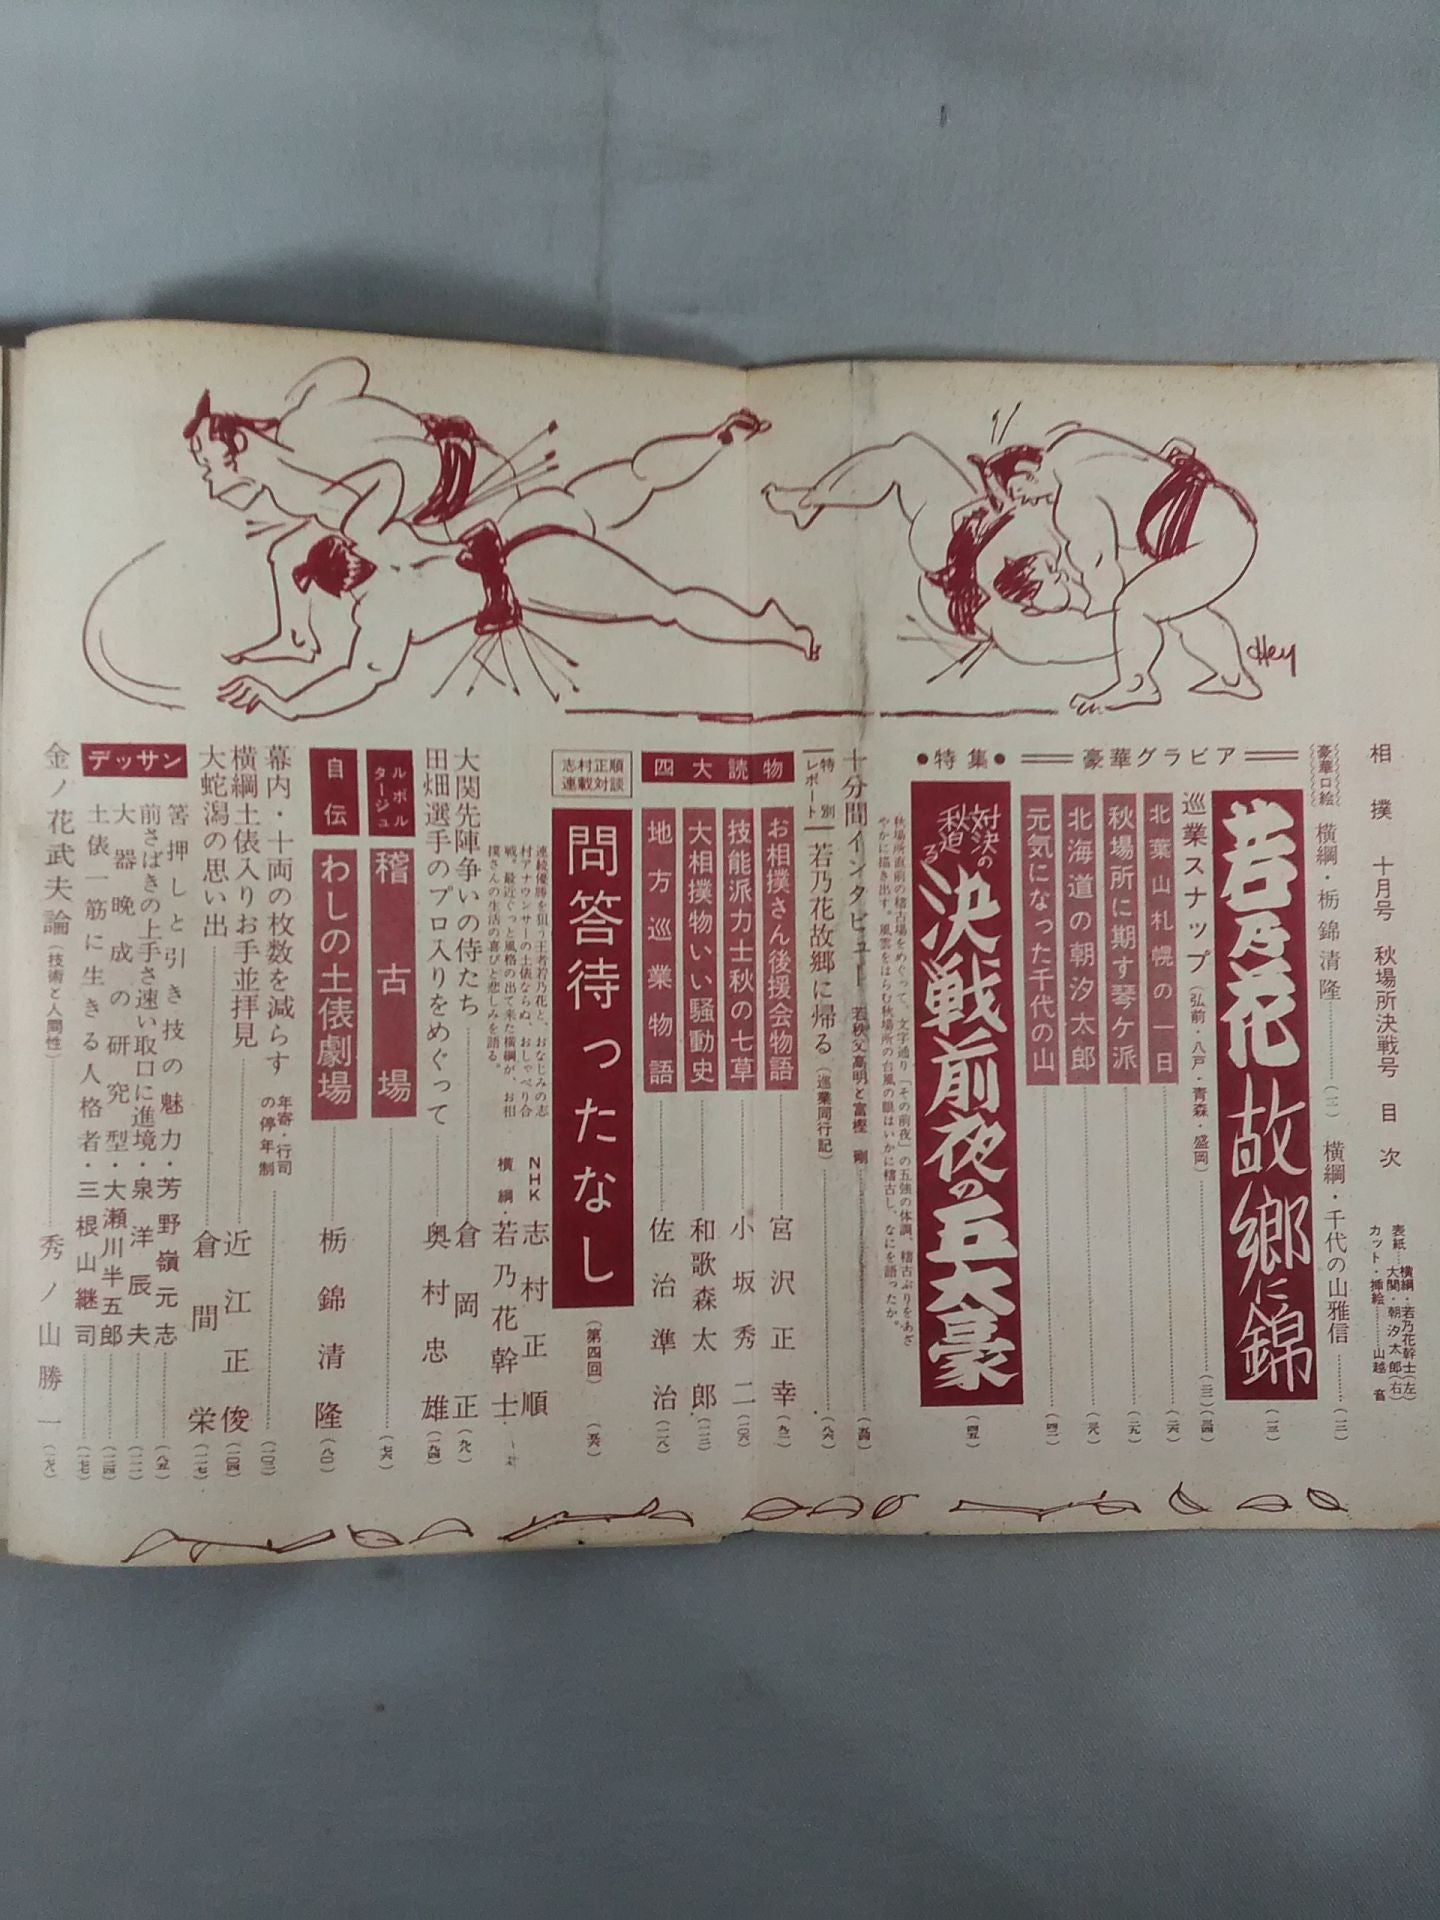 相撲 十月号 秋場所決戦号 目次
表紙 横綱・若乃花幹士(左)
大関・朝汐太郎(右)
カット・挿絵……山越 音
豪華口絵
横綱・栃錦清隆……(一) 横綱・千代の山雅信……(二)
豪華グラビア
若乃花故郷に錦
巡業スナップ(弘前・八戸・青森・盛岡)
北葉山札幌の一日
秋場所に期す琴ケ浜
北海道の朝汐太郎
元気になった千代の山
●特集●
対決の秋迫る
決戦前夜の五大豪
秋場所直前の稽古場をめぐって、文字通り「その前夜」の五強の体調、稽古ぶりをあざ
やかに描き出す。風雲をはらむ秋場所の台風の眼はいかに稽古し、なにを語ったか。
十分間インタビュー 若秩父高明と富樫 剛
特別レポート
若乃花故郷に帰る(巡業同行記)
四大読物
お相撲さん後援会物語……宮沢正幸
技能派力士秋の七草……小坂秀二
大相撲物いい騒動史……和歌森太郎
地方巡業物語……佐治準治
志村正順連載対談
問答待ったなし(第四回)
連続優勝を狙う王者若乃花と、おなじみの志
村アナウンサーの土俵ならぬ、おしゃべり合
戦。最近ぐっと風格の出て来た横綱が、お相
撲さんの生活の喜びと悲しみを語る。
NHK 志村正順
横綱・若乃花幹士
大関先陣争いの侍たち……倉岡 正
田畑選手のプロ入りをめぐって……奥村忠雄
ルポルタージュ
稽古場
自伝
わしの土俵劇場……栃錦清隆
幕内・十両の枚数を減らす 年寄・行司の停年制
横綱土俵入りお手並拝見……近江正俊
大蛇潟の思い出……倉間 栄
デッサン
筈押しと引き技の魅力・芳野嶺元志
前さばきの上手さ速い取口に進境・泉洋辰夫
大器晩成の研究型・大瀬川半五郎
土俵一筋に生きる人格者・三根山継司
金ノ花武夫論(技術と人間性)……秀ノ山勝一
Hey